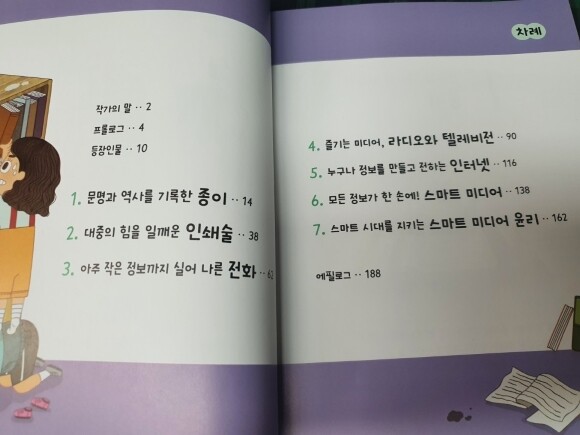 차례
작가의 말 ·· 2
프롤로그 ·· 4
등장인물 ·· 10
1. 문명과 역사를 기록한 종이 ·· 14
2. 대중의 힘을 일깨운 인쇄술 ·· 38
3. 아주 작은 정보까지 실어 나른 전화 ··
4. 즐기는 미디어, 라디오와 텔레비전 ·· 90
5. 누구나 정보를 만들고 전하는 인터넷 ·· 116
6. 모든 정보가 한 손에! 스마트 미디어 ·· 138
7. 스마트 시대를 지키는 스마트 미디어 윤리 ·· 162
에필로그 ·· 188